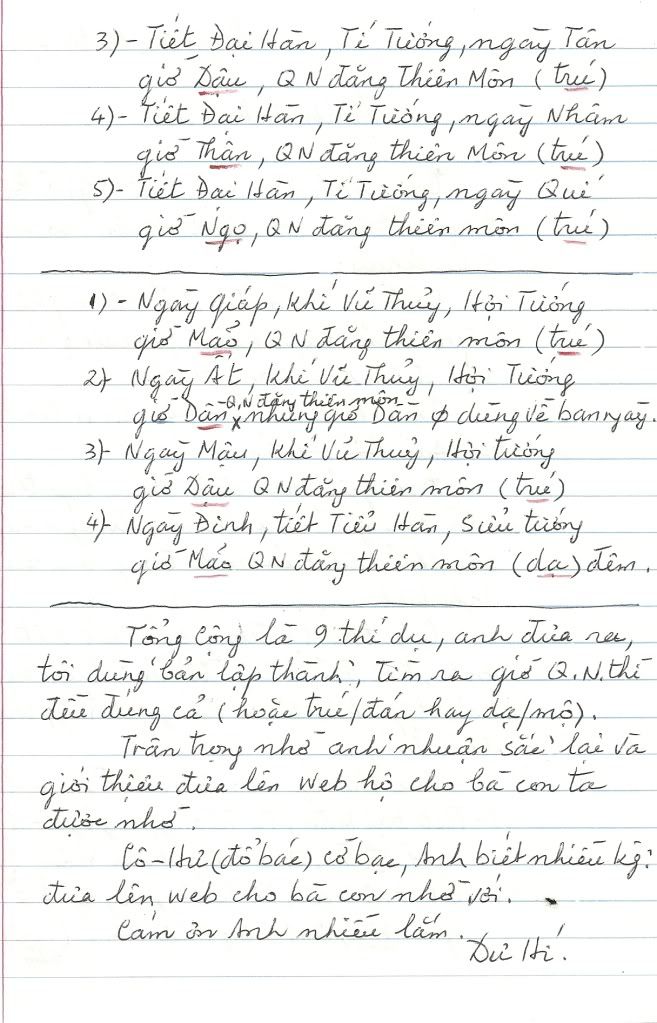 3)- Tiết Đại Hàn, Tí Tướng, ngày Tân
giờ Dậu, QN đăng Thiên Môn (trú)
4)- Tiết Đại Hàn, Tí Tướng, ngày Nhâm
giờ Thân, QN đăng thiên Môn (trú)
5)- Tiết Đại Hàn, Tí Tướng, ngày Quí
giờ Ngọ, QN đăng thiên môn (trú)
1) - Ngày Giáp, Khí Vũ Thuỷ, Hợi Tướng
giờ Mão, QN đăng thiên môn (trú)
2)- Ngày Ất, Khí Vũ Thuỷ, Hợi Tướng
-Q.N đăng thiên môn
giờ Dần x những giờ Dần φ dùng về ban ngày.
3)- Ngày Mậu, Khí Vũ Thuỷ, Hợi tướng
giờ Dậu QN đăng thiên môn (trú)
4)- Ngày Đinh, tiết Tiểu Hàn, Sửu tướng
giờ Mão QN đăng thiên môn (dạ) đêm.
Tổng Cộng là 9 thí dụ, anh đưa ra,
tôi dùng "bản lập thành", tìm ra giờ Q.N. thì
đều đúng cả (hoặc trú/đán hay dạ/mộ).
Trân trọng nhờ anh nhuận sắc lại và
giới thiệu đưa lên Web hộ cho bà con ta
được nhờ.
Cô-Hư (đổ bác) cờ bạc, Anh biết nhiều kg?
đưa lên Web cho bà con nhờ với.
Cám ơn Anh nhiều lắm.
Dư Hí.